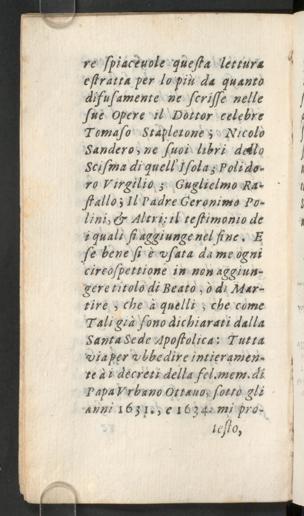 re ſpiaceuole queſta lettura
eſtratta per lo più da quanto
difuſamente ne ſcriſſe nelle
ſue Opere il Dottor celebre
Tomaſo Stapletone ; Nicolo
Sandero, ne ſuoi libri dello
Sciſma di quell'Iſola ; Polido-
ro Virgilio ; Guglielmo Ra-
ſtallo ; Il Padre Geronimo Po-
lini, & Altri ; il teſtimonio de
i quali ſi aggiunge nel fine. E
ſe bene ſi è vſata da me ogni
circoſpettione in non aggiun-
gere titolo di Beato, ò di Mar-
tire , che à quelli , che come
Tali già ſono dichiarati dalla
Santa Sede Apoſtolica : Tutta
via per vbbedire intieramen-
te à i decreti della fel. mem. di
Papa Vrbano Ottauo, ſotto gli
anni 1631., e 1634. mi pro-
teſto,